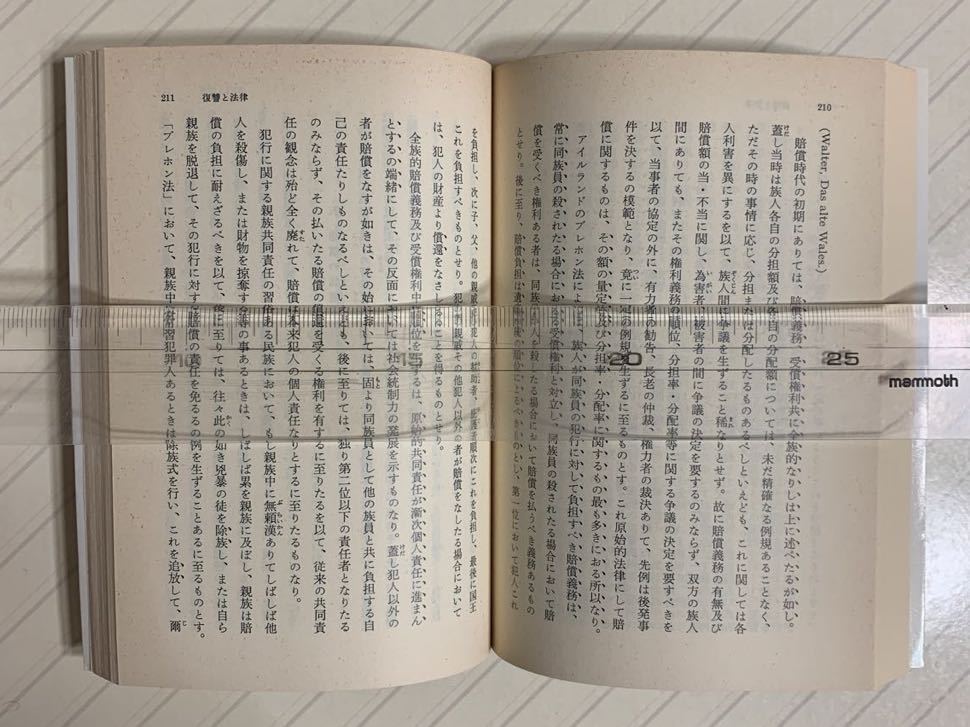 210
(Walter, Das alte Wales.)
賠償時代の初期にありては、賠償義務、受償権利共に全族的なりしは上に述べたるが如し。
蓋し当時は族人各自の分担額及び各自の分配額については、未だ精確なる例規あることなく、
ただその時の事情に応じ、分担または分配したるものあるべしといえども、これに関しては各
人利害を異にするを以て、族人間に争議を生ずること稀なりとせず。故に賠償義務の有無及び
賠償額の当・不当に関し、為害者、被害者の間に争議の決定を要するのみならず、双方の族人
間にありても、またその権利義務の順位、分担率・分配率等に関する争議の決定を要すべきを
以て、当事者の協定の外に、有力者の勧告、長老の仲裁、権力者の裁決ありて、先例は後発事
件を決するの模範となり、竟に一定の例規を生ずるに至るものとす。これ原始的法律にして賠
償に関するものは、その額の量定及び分担率・分配率に関するもの最も多きにおる所以なり。
アイルランドのブレホン法によれば、族人が同族員の犯行に対して負担すべき賠償義務は、
常に同族員の殺されたる場合における受償権利と対立し、同族員の殺されたる場合において賠
償を受くべき権利ある者は、同族員が人を殺したる場合において賠償を払うべき義務あるもの
とせり。後に至り、賠償負担は
第一位において犯人これ
211 復讐と法律
を負担し、次に子、父、他の親戚
順次にこれを負担し、最後に国王
これを負担すべきものとせり。犯人の親戚その他犯人以外の者が賠償をなしたる場合において
は、犯人の財産より償還をなさしむることを得るものとせり。
全族的賠償義務及び受償権利中に順位を生ずるは、原始的共同責任が漸次個人責任に進まん
とするの端緒にして、その反面においては社会統制力の発展を示すものなり。蓋し犯人以外の
者が賠償をなすが如きは、その始においては、固より同族員として他の族員と共に負担する自
己の責任たりしものなるべしといえども、後に至りては、独り第二位以下の責任者となりたる
のみならず、その払いたる賠償の償還を受くる権利を有するに至りたるを以て、従来の共同責
任の観念は殆ど全く廃れて、賠償は本来犯人の個人責任なりとするに至りたるものなり。
犯行に関する親族共同責任の習俗ある民族において、もし親族中に無頼漢ありてしばしば他
人を殺傷し、または財物を掠奪する等の事あるときは、しばしば累を親族に及ぼし、親族は賠
償の負担に耐えざるべきを以て、後に至りては、往々此の如き兇暴の徒を除族し、または自ら
親族を脱退して、その犯行に対する賠償の責任を免るるの例を生ずることあるに至るものとす。
「ブレホン法」において、親族中に常習犯罪人あるときは除族式を行い、これを追放して、爾
10
15
20
25
mammoth